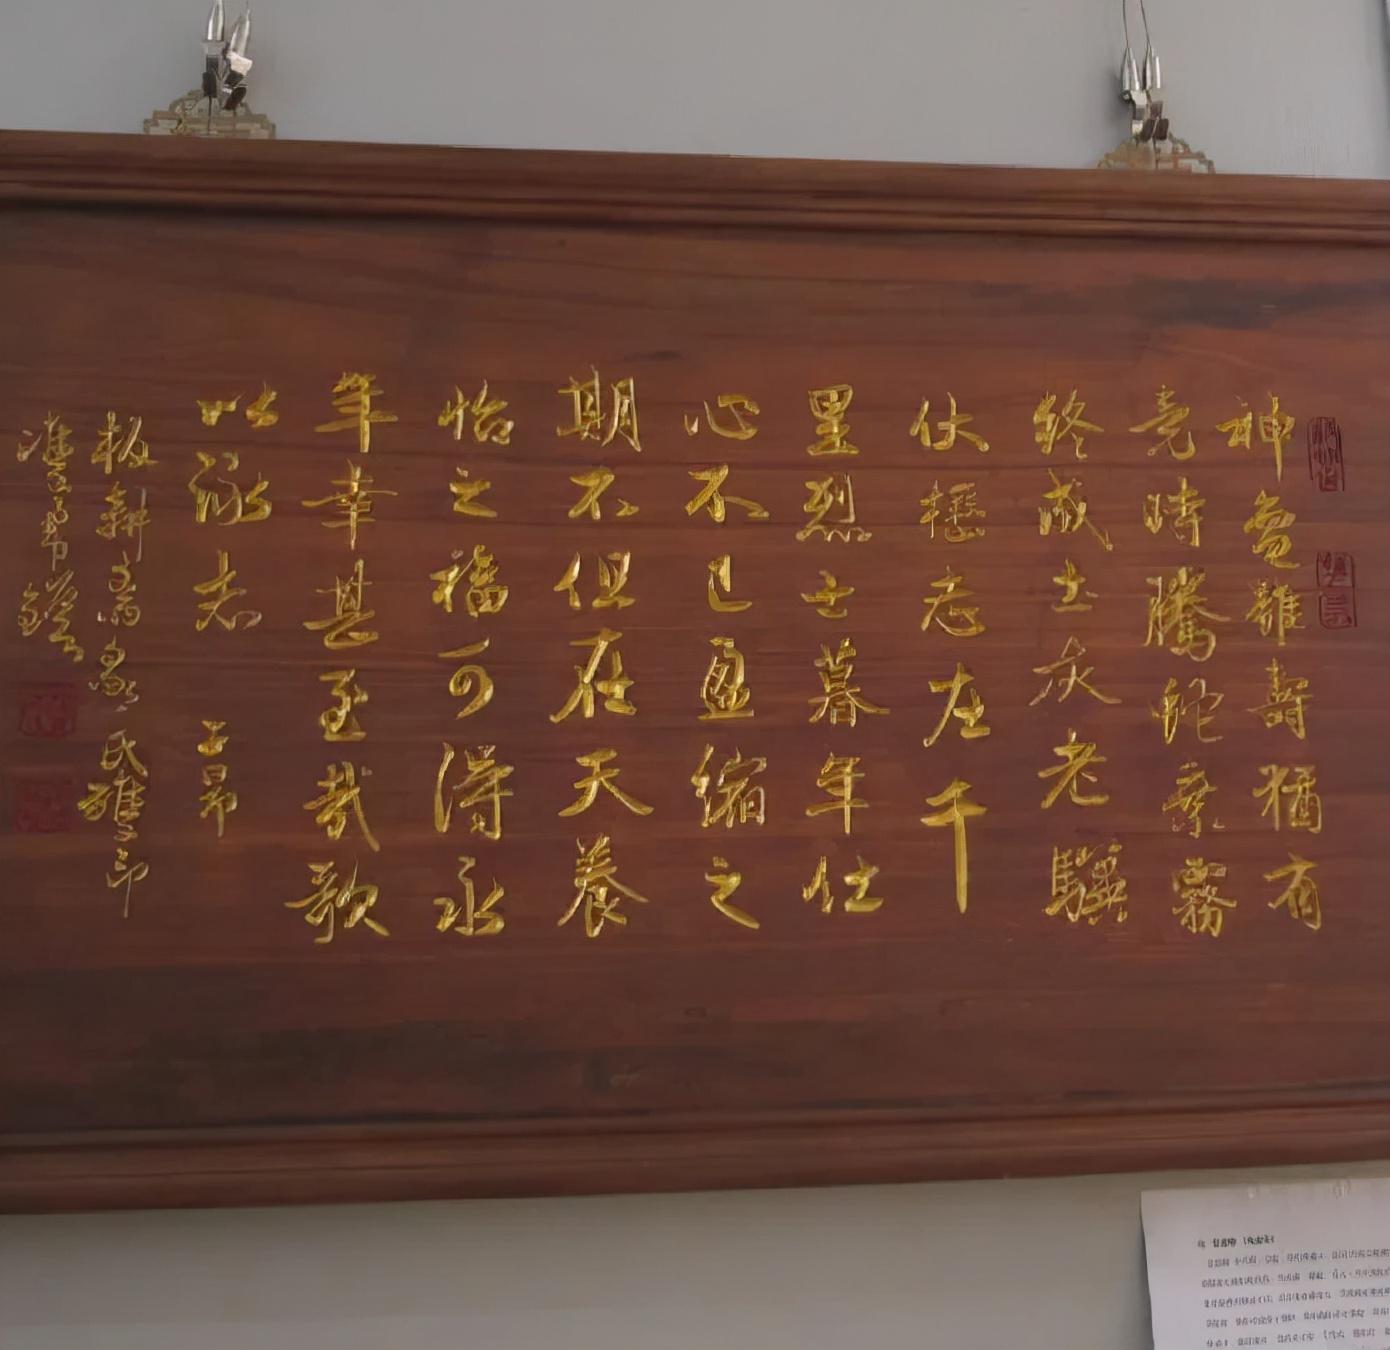 神龜雖壽猶有
竟時騰蛇乘霧
終成土灰老驥
伏櫪志在千
里烈士暮年壯
心不已盈縮之
期不但在天養
怡之福可得永
年幸甚至哉歌
以詠志 子昂
板耕 氏雅